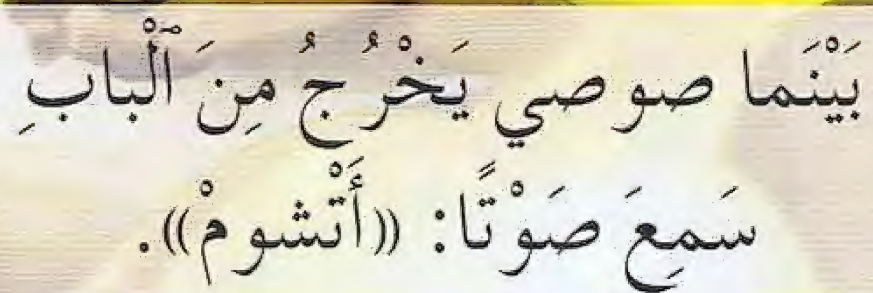 بَيْنَما صوصي يَخْرُجُ مِنَ ٱلْبابِ
سَمِعَ صَوْتًا: ((أَتْشومْ)).